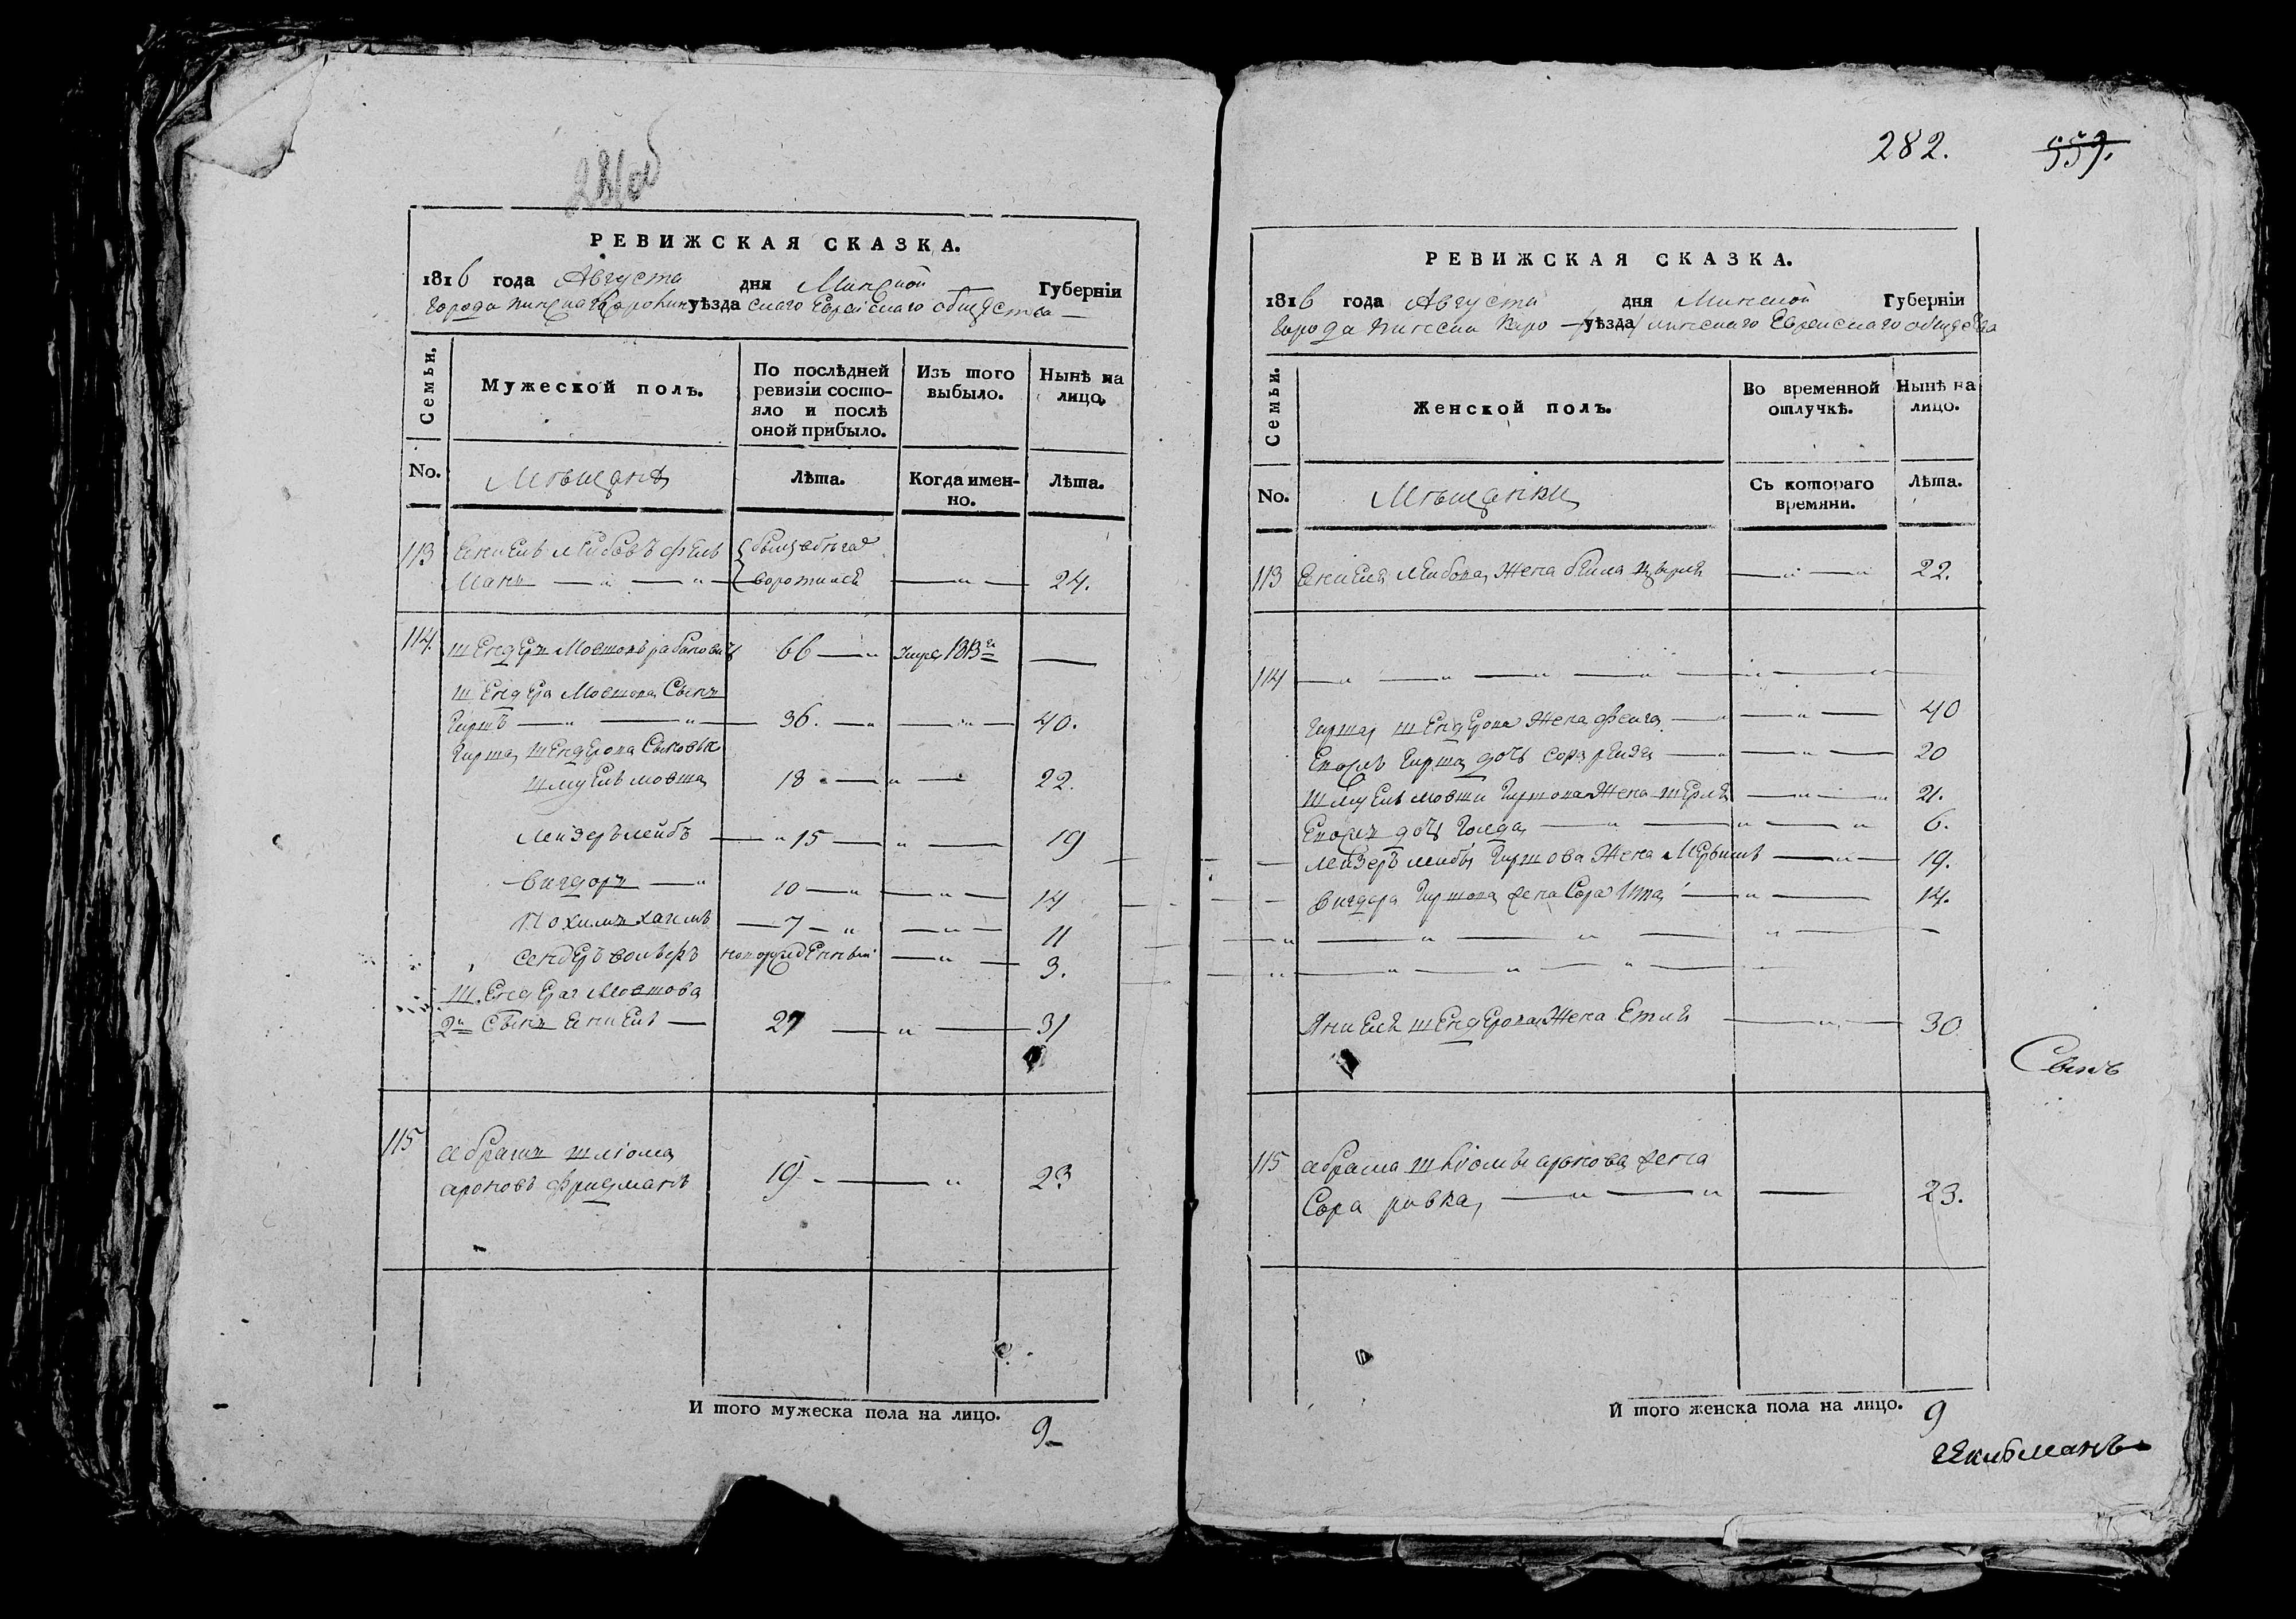 РЕВИЖСКАЯ СКАЗКА.
1816 года Августа дня Минской Губернiи
города пинска уѣзда скаго Евреискаго общества
Семьи.
Мужеской полъ.
По послѣдней ревизiи состояло и послѣ оной прибыло.
Изъ того выбыло.
Нынѣ на лицо.
No.
Мѣщанѣ
Лѣта.
Когда именно.
Лѣта.
113 Янкель Леибовъ фель
манъ 24.
114. шЕндеръ Мовшовъ рабиновичъ 66 Умре 1813го
шЕндера Мовшова Сынъ
Гиршъ 36. 40.
Гирша шЕндерова Сыновья
шмуель мовша 18 22.
Леизеръ лейбъ 15 19
вигдоръ 10 14
Нохимъ хаимъ 7 11
сендеръ вольфъ новорожденныи 3.
шЕндера Мовшова
2й Сынъ Янкель 27 31
115 абрамъ шлiома
ароновъ фридманъ 19 23
И того мужеска пола на лицо. 9
282. 559.
РЕВИЖСКАЯ СКАЗКА.
1816 года Августа дня Минской Губернiи
города пинска Каро уѣзда линскаго Евреискаго общества
Семьи.
Женской полъ.
Во временной отлучкѣ.
Нынѣ на лицо.
No.
Мѣщанки
Съ котораго времяни.
Лѣта.
113 Янкеля Леибова Жена беила 22.
114
Гирша шЕндерова Жена феига 40
Гирша дочь сора 20
шмуель мовши Гиршова Жена 21.
дочь Голда 6.
Леизеръ леибы Гиршова Жена 19.
вигдора Гиршова жена Сора Ита 14.
Янкеля шЕндерова Жена Етля 30
115 абрама шлiомы аронова жена
Сора ривка 23.
И того женска пола на лицо. 9